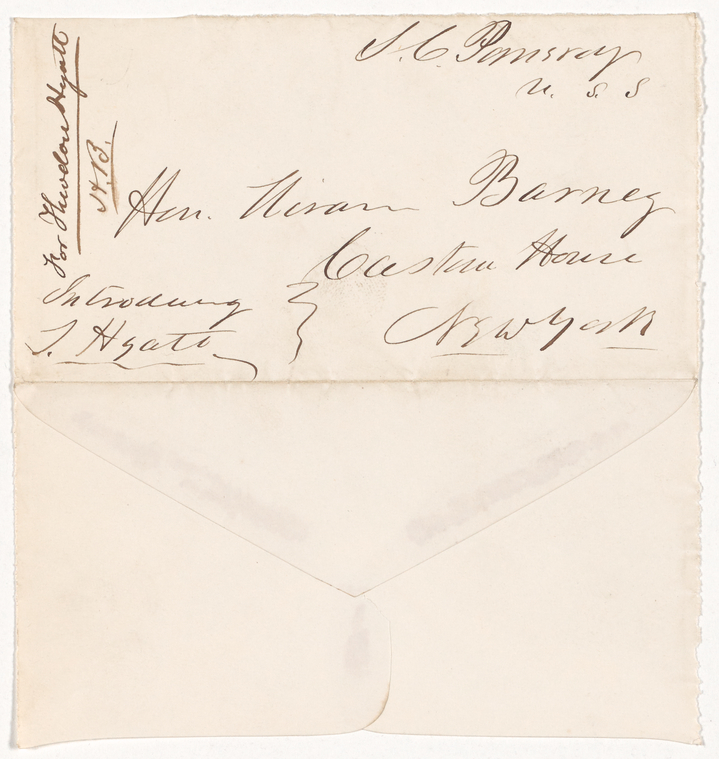 S. C. Pomeroy
U. S. S
For Theodore Hyatt
H. B.
Hon. Hiram Barney
Custom House
New York
Introducing
T. Hyatt